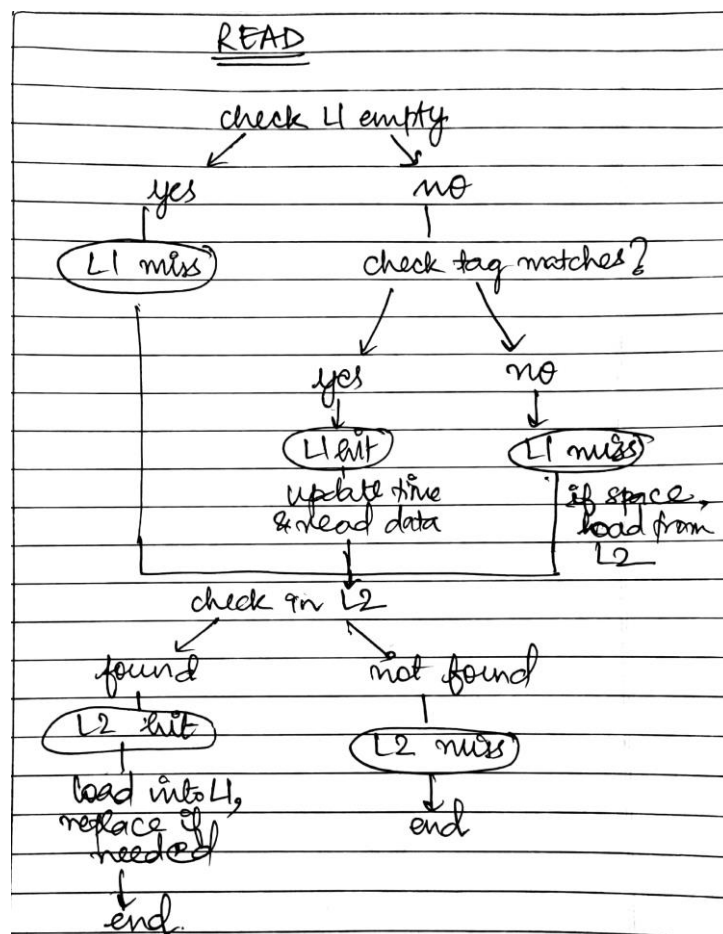 READ
check L1 empty
yes no
L1 miss check tag matches?
yes no
L1 hit L1 miss
update time if space,
& read data load from
L2
check in L2
found not found
L2 hit L2 miss
load into L1,
replace if end
needed
end.